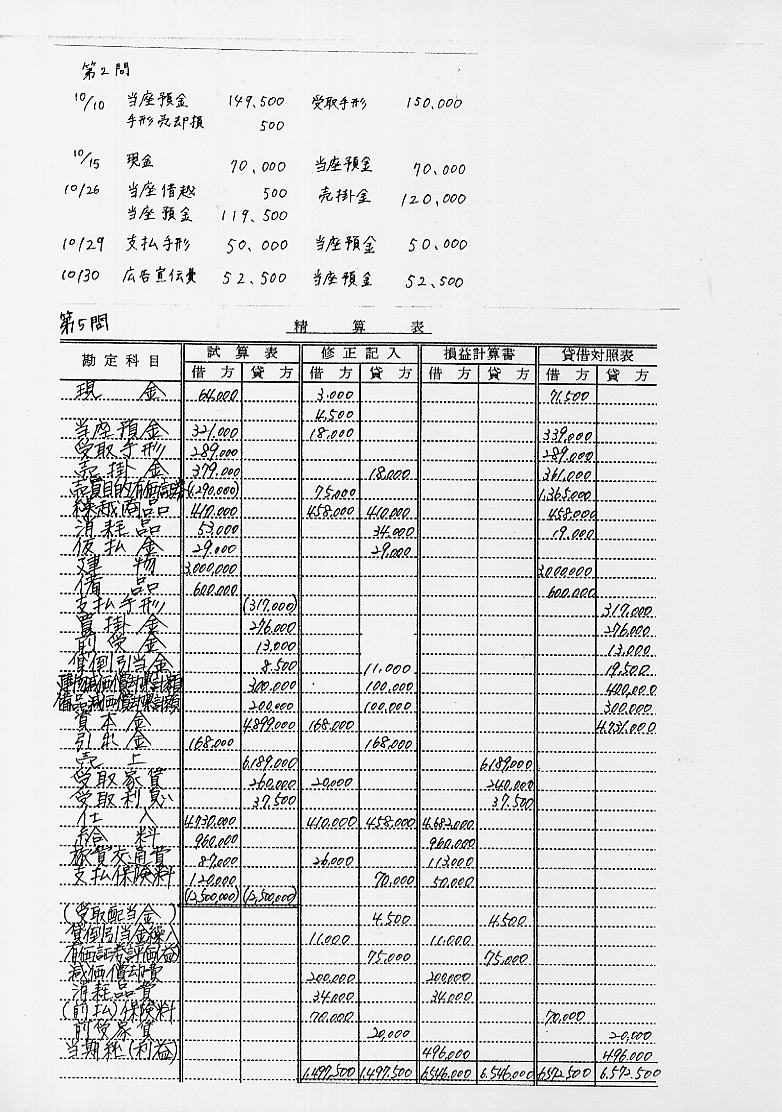 第2問
10/10 当座預金 149,500 受取手形 150,000
手形売却損 500
10/15 現金 70,000 当座預金 70,000
10/26 当座借越 500 売掛金 120,000
当座預金 119,500
10/29 支払手形 50,000 当座預金 50,000
10/30 広告宣伝費 52,500 当座預金 52,500
第5問
精算表
勘定科目 試算表 修正記入 損益計算書 貸借対照表
借方 貸方 借方 貸方 借方 貸方 借方 貸方
現金 64,000 3,000 71,500
4,500
当座預金 321,000 18,000 339,000
受取手形 289,000 289,000
売掛金 379,000 18,000 361,000
売買目的有価証券 (1,290,000) 75,000 1,365,000
繰越商品 410,000 458,000 410,000 458,000
消耗品 53,000 34,000 19,000
仮払金 29,000 29,000
建物 3,000,000 3,000,000
備品 600,000 600,000
支払手形 (317,000) 317,000
買掛金 276,000 276,000
前受金 13,000 13,000
貸倒引当金 8,500 11,000 19,500
建物減価償却累計額 300,000 100,000 400,000
備品減価償却累計額 200,000 100,000 300,000
資本金 4,899,000 168,000 4,731,000
引出金 168,000 168,000
売上 6,189,000 6,189,000
受取家賃 260,000 20,000 240,000
受取利息 37,500 37,500
仕入 4,730,000 410,000 458,000 4,682,000
給料 960,000 960,000
旅費交通費 87,000 26,000 113,000
支払保険料 120,000 70,000 50,000
(12,500,000) (12,500,000)
(受取配当金) 4,500 4,500
貸倒引当金繰入 11,000 11,000
有価証券(評価益) 75,000 75,000
減価償却費 200,000 200,000
消耗品費 34,000 34,000
(前払)保険料 70,000 70,000
前受家賃 20,000 20,000
当期純(利益) 496,000 496,000
1,497,500 1,497,500 6,546,000 6,546,000 6,572,500 6,572,500